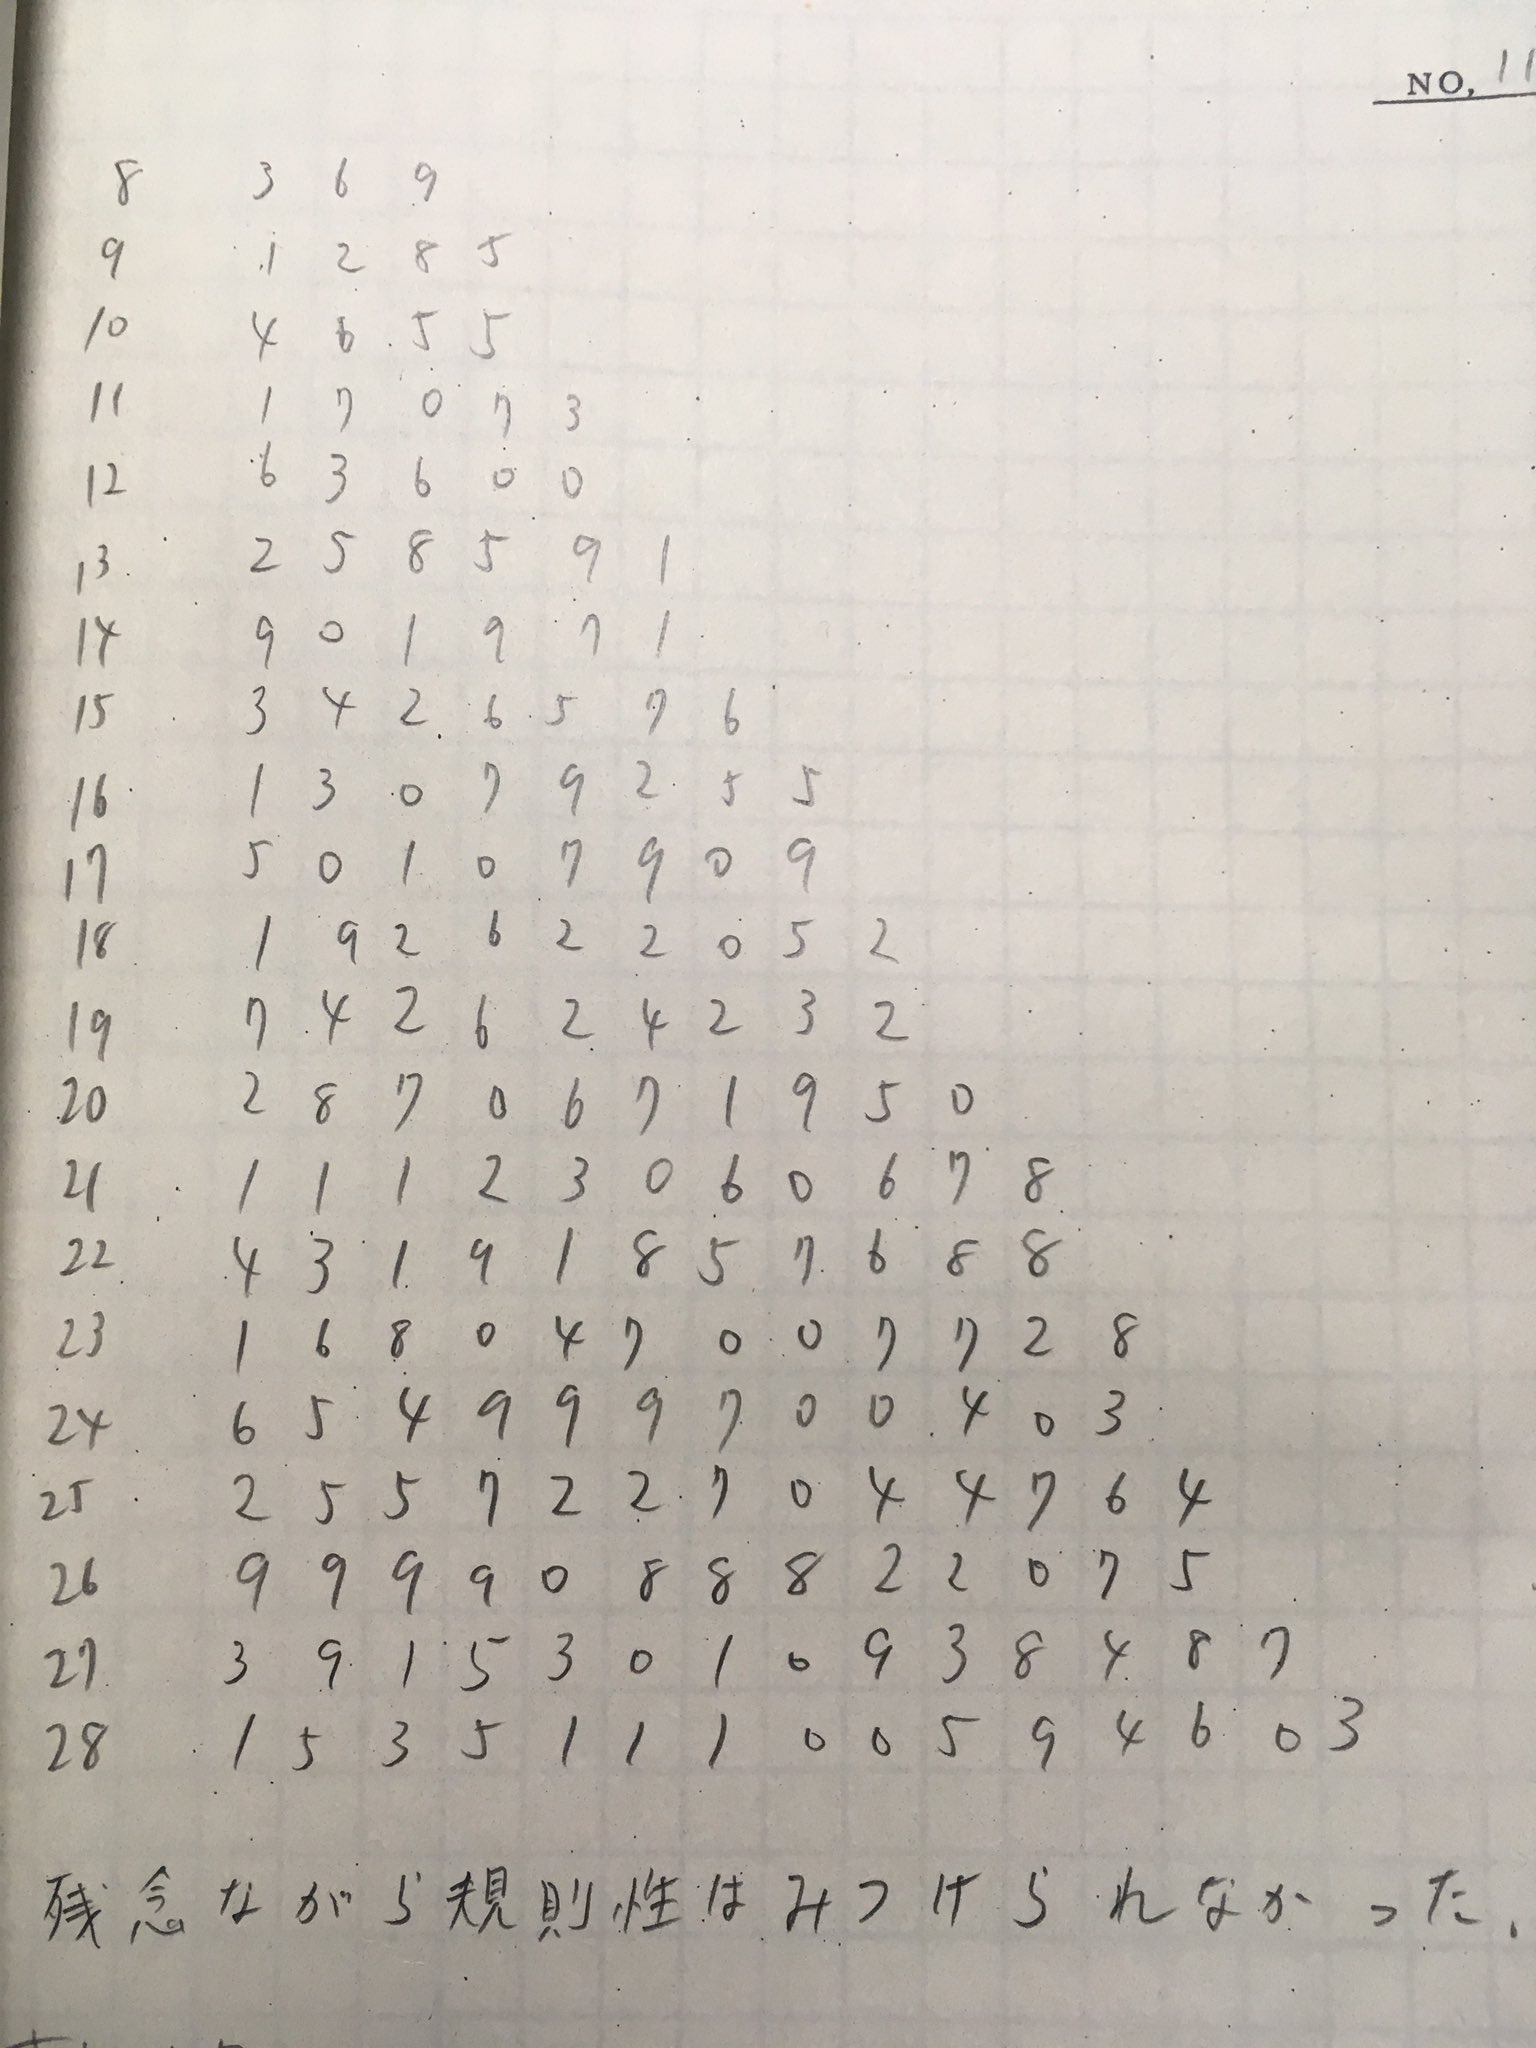 NO. 11
8 3 6 9
9 1 2 8 5
10 4 6 5 5
11 1 7 0 7 3
12 6 3 6 0 0
13 2 5 8 5 9 1
14 9 0 1 9 7 1
15 3 4 2 6 5 7 6
16 1 3 0 7 9 2 5 5
17 5 0 1 0 7 9 0 9
18 1 9 2 6 2 2 0 5 2
19 7 4 2 6 2 4 2 3 2
20 2 8 7 0 6 7 1 9 5 0
21 1 1 1 2 3 0 6 0 6 7 8
22 4 3 1 9 1 8 5 7 6 8 8
23 1 6 8 0 4 7 0 0 7 7 2 8
24 6 5 4 9 9 9 7 0 0 4 0 3
25 2 5 5 7 2 2 7 0 4 4 7 6 4
26 9 9 9 9 0 8 8 8 2 2 0 7 5
27 3 9 1 5 3 0 1 0 9 3 8 4 8 7
28 1 5 3 5 1 1 1 0 0 5 9 4 6 0 3
残念ながら規則性はみつけられなかった.